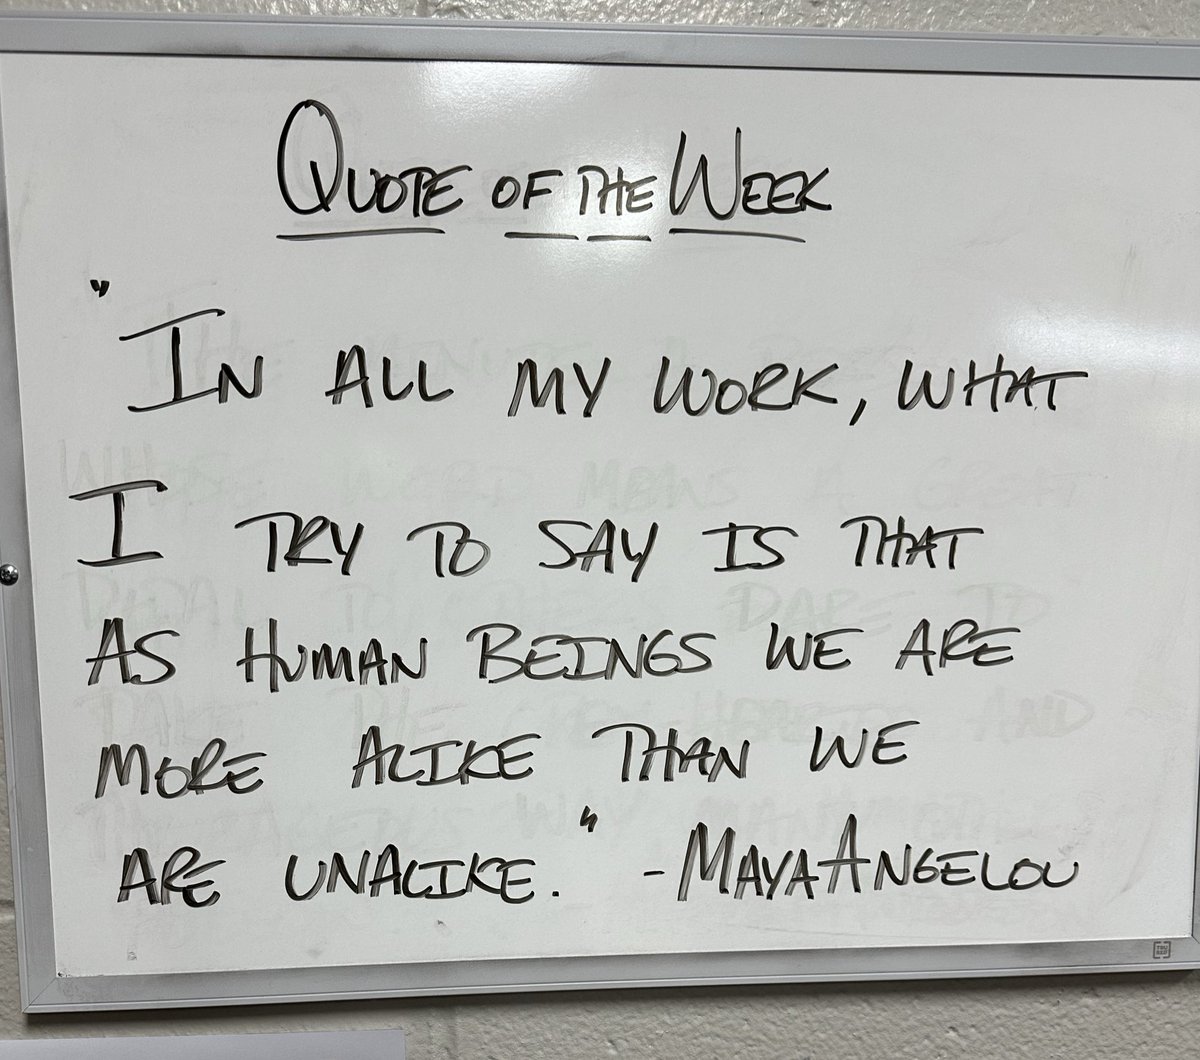 QUOTE OF THE WEEK
"IN ALL MY WORK, WHAT
I TRY TO SAY IS THAT
AS HUMAN BEINGS WE ARE
MORE ALIKE THAN WE
ARE UNALIKE." -MAYA ANGELOU